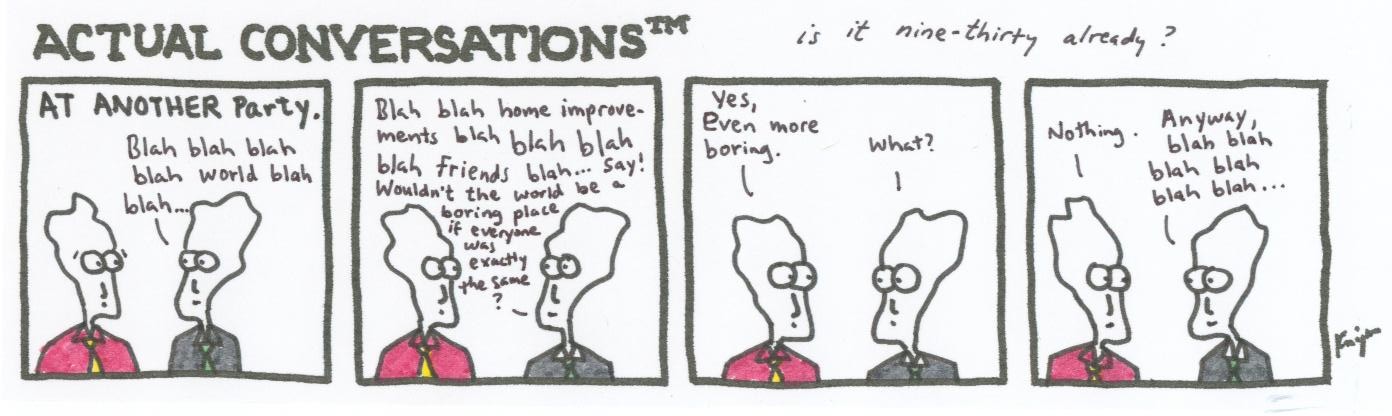 ACTUAL CONVERSATIONS™
is it nine-thirty already?
AT ANOTHER Party.
Blah blah blah
blah world blah
blah...
Blah blah home improve-
ments blah blah blah
blah friends blah... Say!
Wouldn't the world be a
boring place
if everyone
was
exactly
the same
?
Yes,
Even more
boring.
What?
Nothing.
Anyway,
blah blah
blah blah
blah blah...